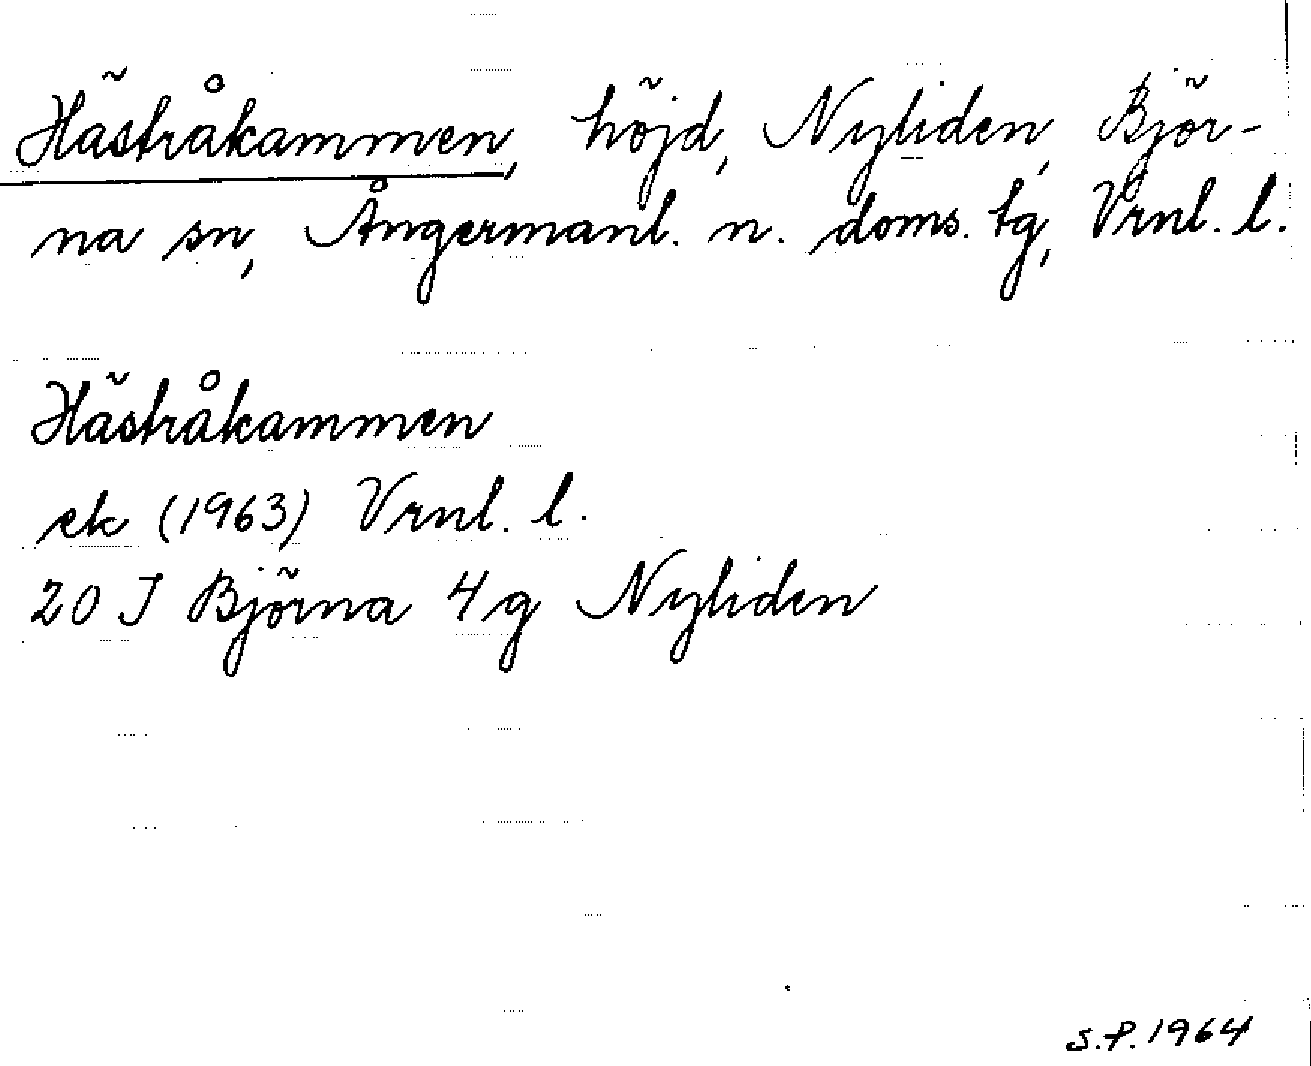 Hästråkammen, höjd, Nyliden, Björ-
na sn, Ångermanl. n. doms. tg, Vrnl. l.
Hästråkammen
ek (1963) Vrnl. l.
20 J Björna 4g Nyliden
S.P. 1964